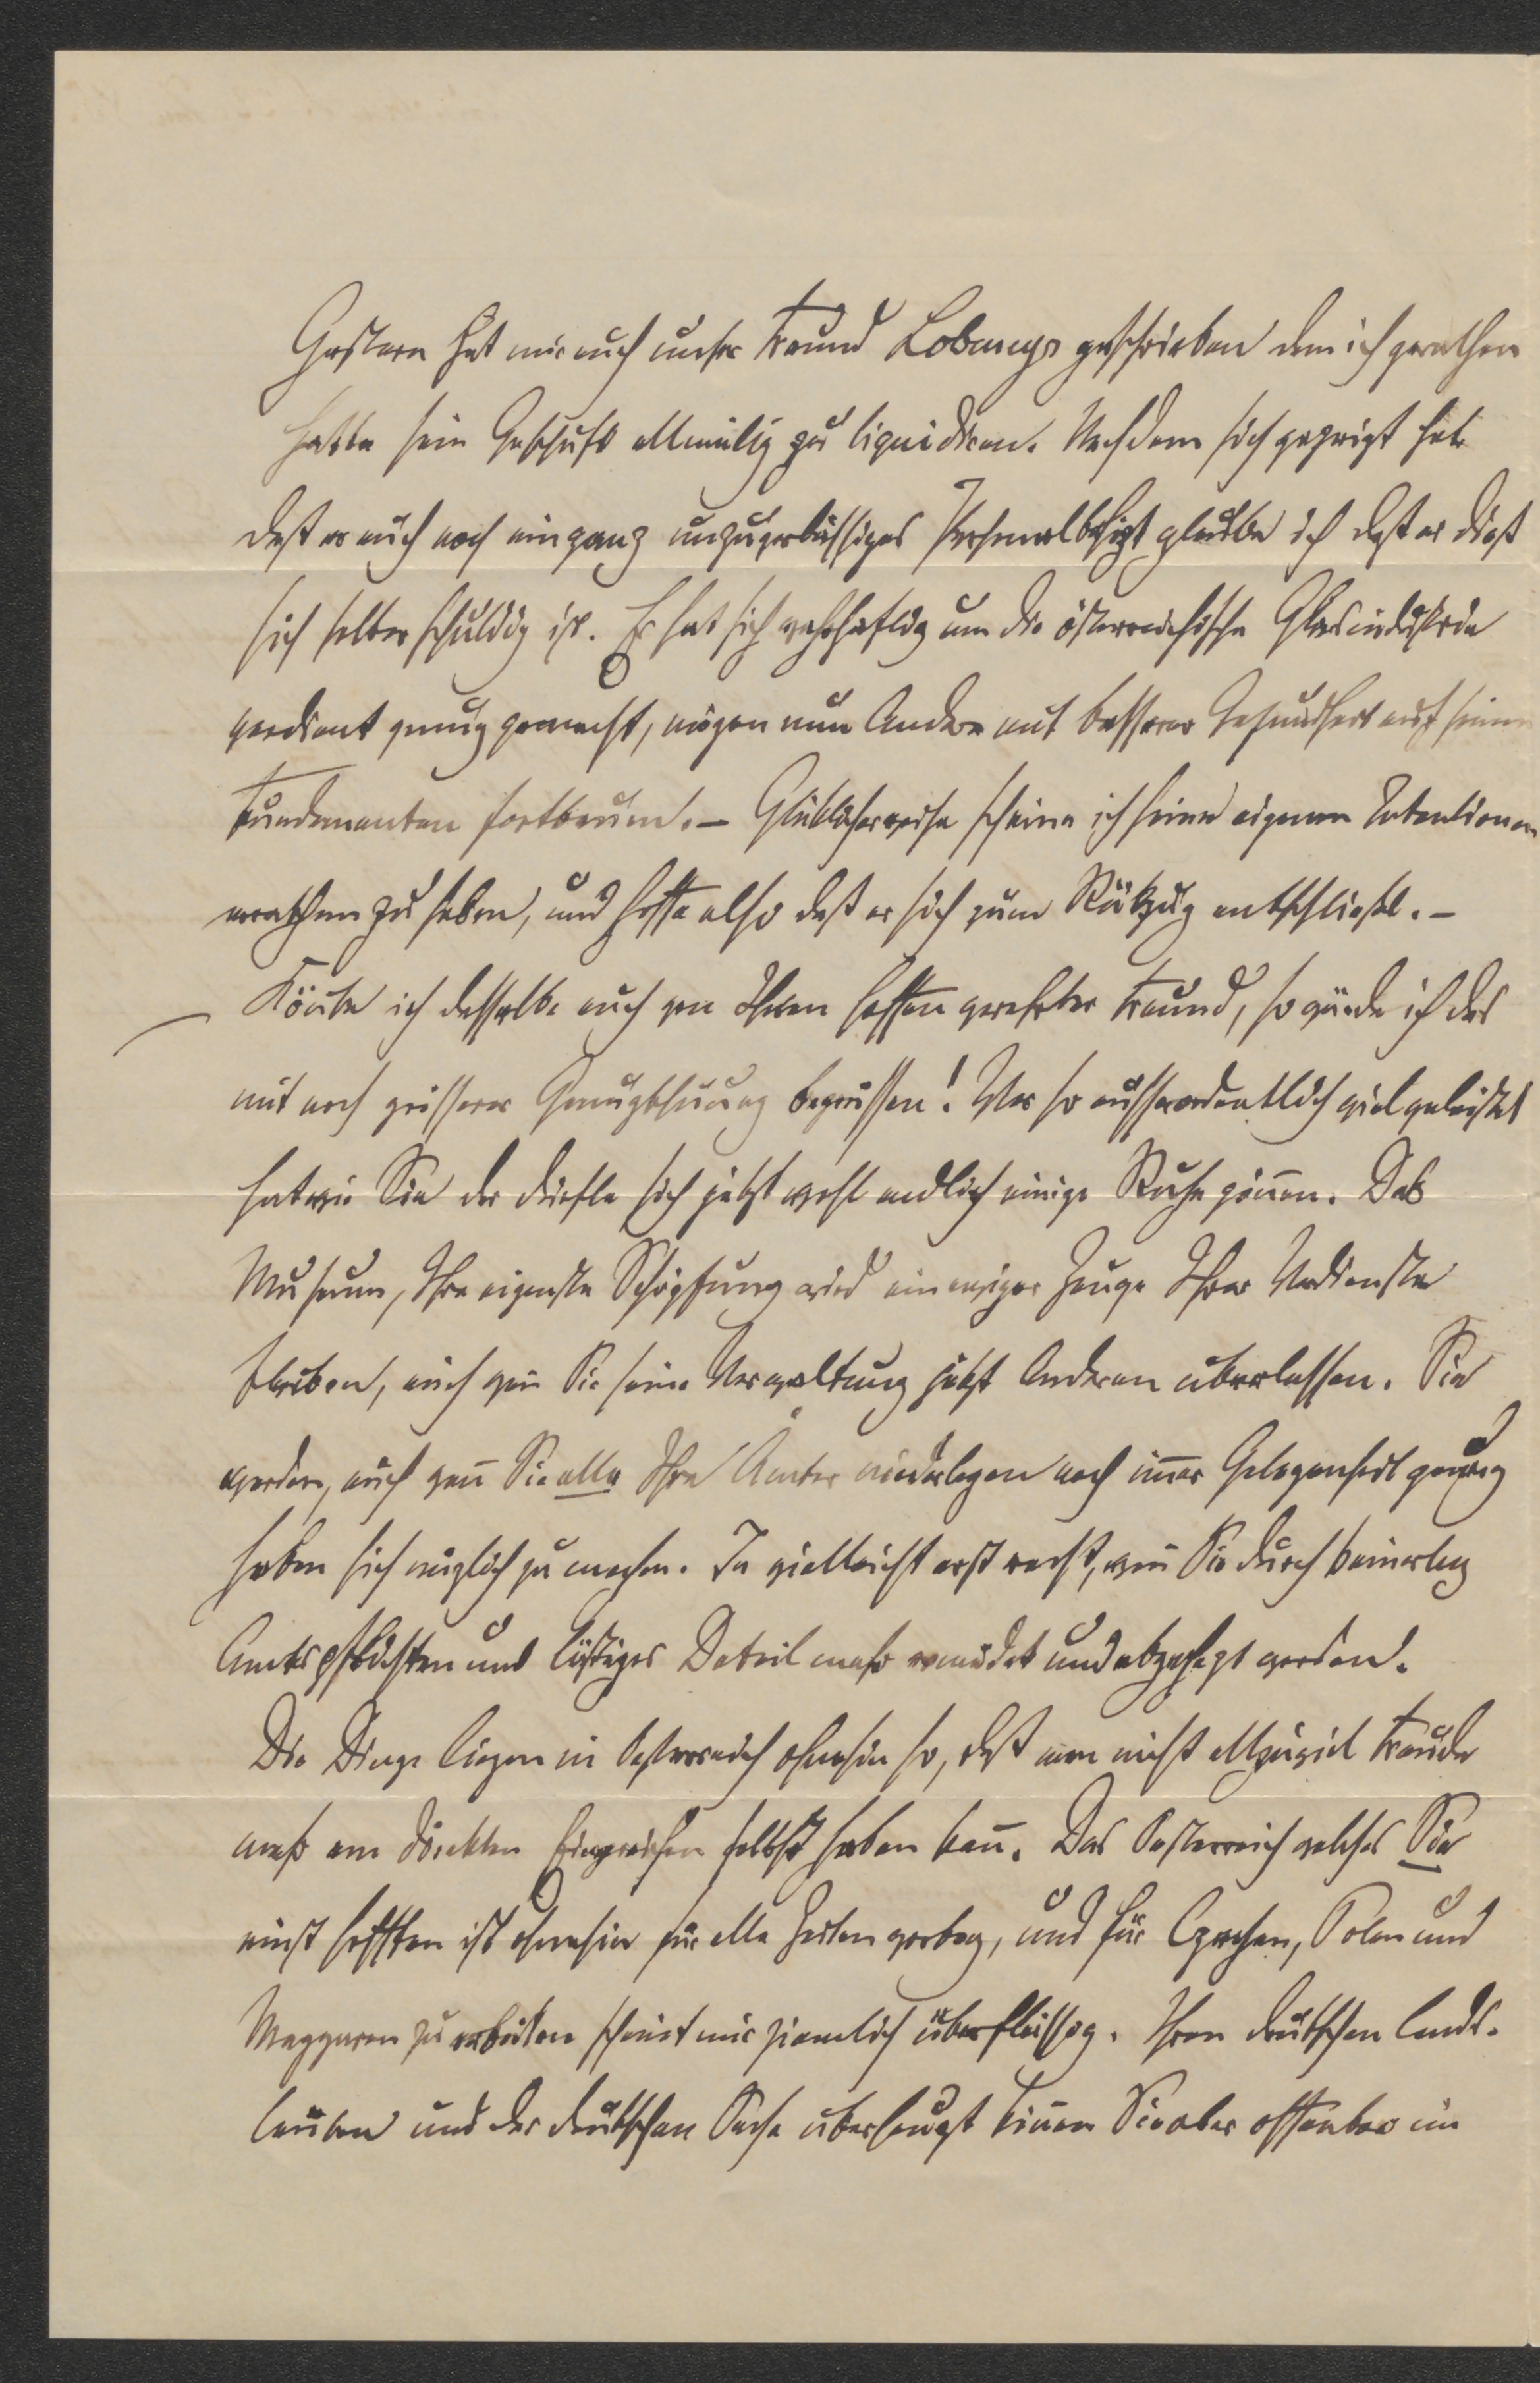 Gestern hat mir auch unser Freund Lobmeyr geschrieben dem ich gerathen
hatte sein Geschäft allmälig zu liquidiren. Nachdem sich gezeigt hat
daß er auch noch ein ganz unzuverlässiges Personal besizt glaube ich daß er dieß
sich selber schuldig ist. Er hat sich wahrhaftig um die österreichische Glasindustrie
verdient genug gemacht, mögen nun Andere mit besserer Gesundheit auf seinen
Fundamenten fortbauen. – Glüklicherweise scheine ich seine eigenen Intentionen
errathen zu haben, und hoffe also daß er sich zum Rükzug entschließt. –
Könte ich dasselbe auch von Ihnen hoffen verehrter Freund, so würde ich das
mit noch grösserer Genugthuung begrüssen! Wer so ausserordentlich viel geleistet
hat wie Sie der dürfte sich jetzt wohl endlich einige Ruhe gönnen. Das
Museum, Ihre eigenste Schöpfung wird ein ewiger Zeuge Ihrer Verdienste
bleiben, auch wen Sie seine Verwaltung jetzt Anderen überlassen. Sie
werden, auch wen̄ Sie alle Ihre Ämter niederlegen noch im̄er Gelegenheit genug
haben sich nüzlich zu machen. Ja vielleicht erst recht, wen̄ Sie durch keinerley
Amtspflichten und lästiges Detail mehr ermüdet und abgehezt werden.
Die Dinge liegen in Oesterreich ohnehin so, daß man nicht allzuviel Freude
mehr am direkten Eingreifen selbst haben kan̄. Das Oesterreich welches Sie
einst hofften ist ohnehin für alle Zeiten vorbey, und für Czechen, Polen und
Magyaren zu arbeiten scheint mir ziemlich überflüssig. Ihren deutschen Lands-
leuten und der deutschen Sache überhaupt kön̄en Sie aber offenbar im